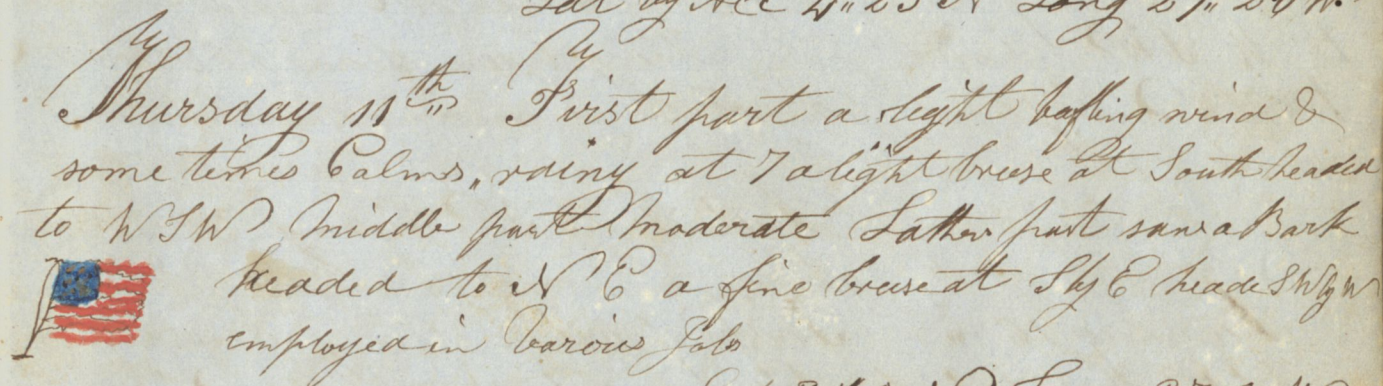 Lat by Acc 4" 23 N Long 27" 20 W.
Thursday 11th First part a light bafling wind &
some times Calms, rainy at 7 a light breese at South headed
to W S W Middle part Moderate Latter part saw a Bark
headed to N E a fine breese at S by E heade SW by W
employed in Varoius Jobs